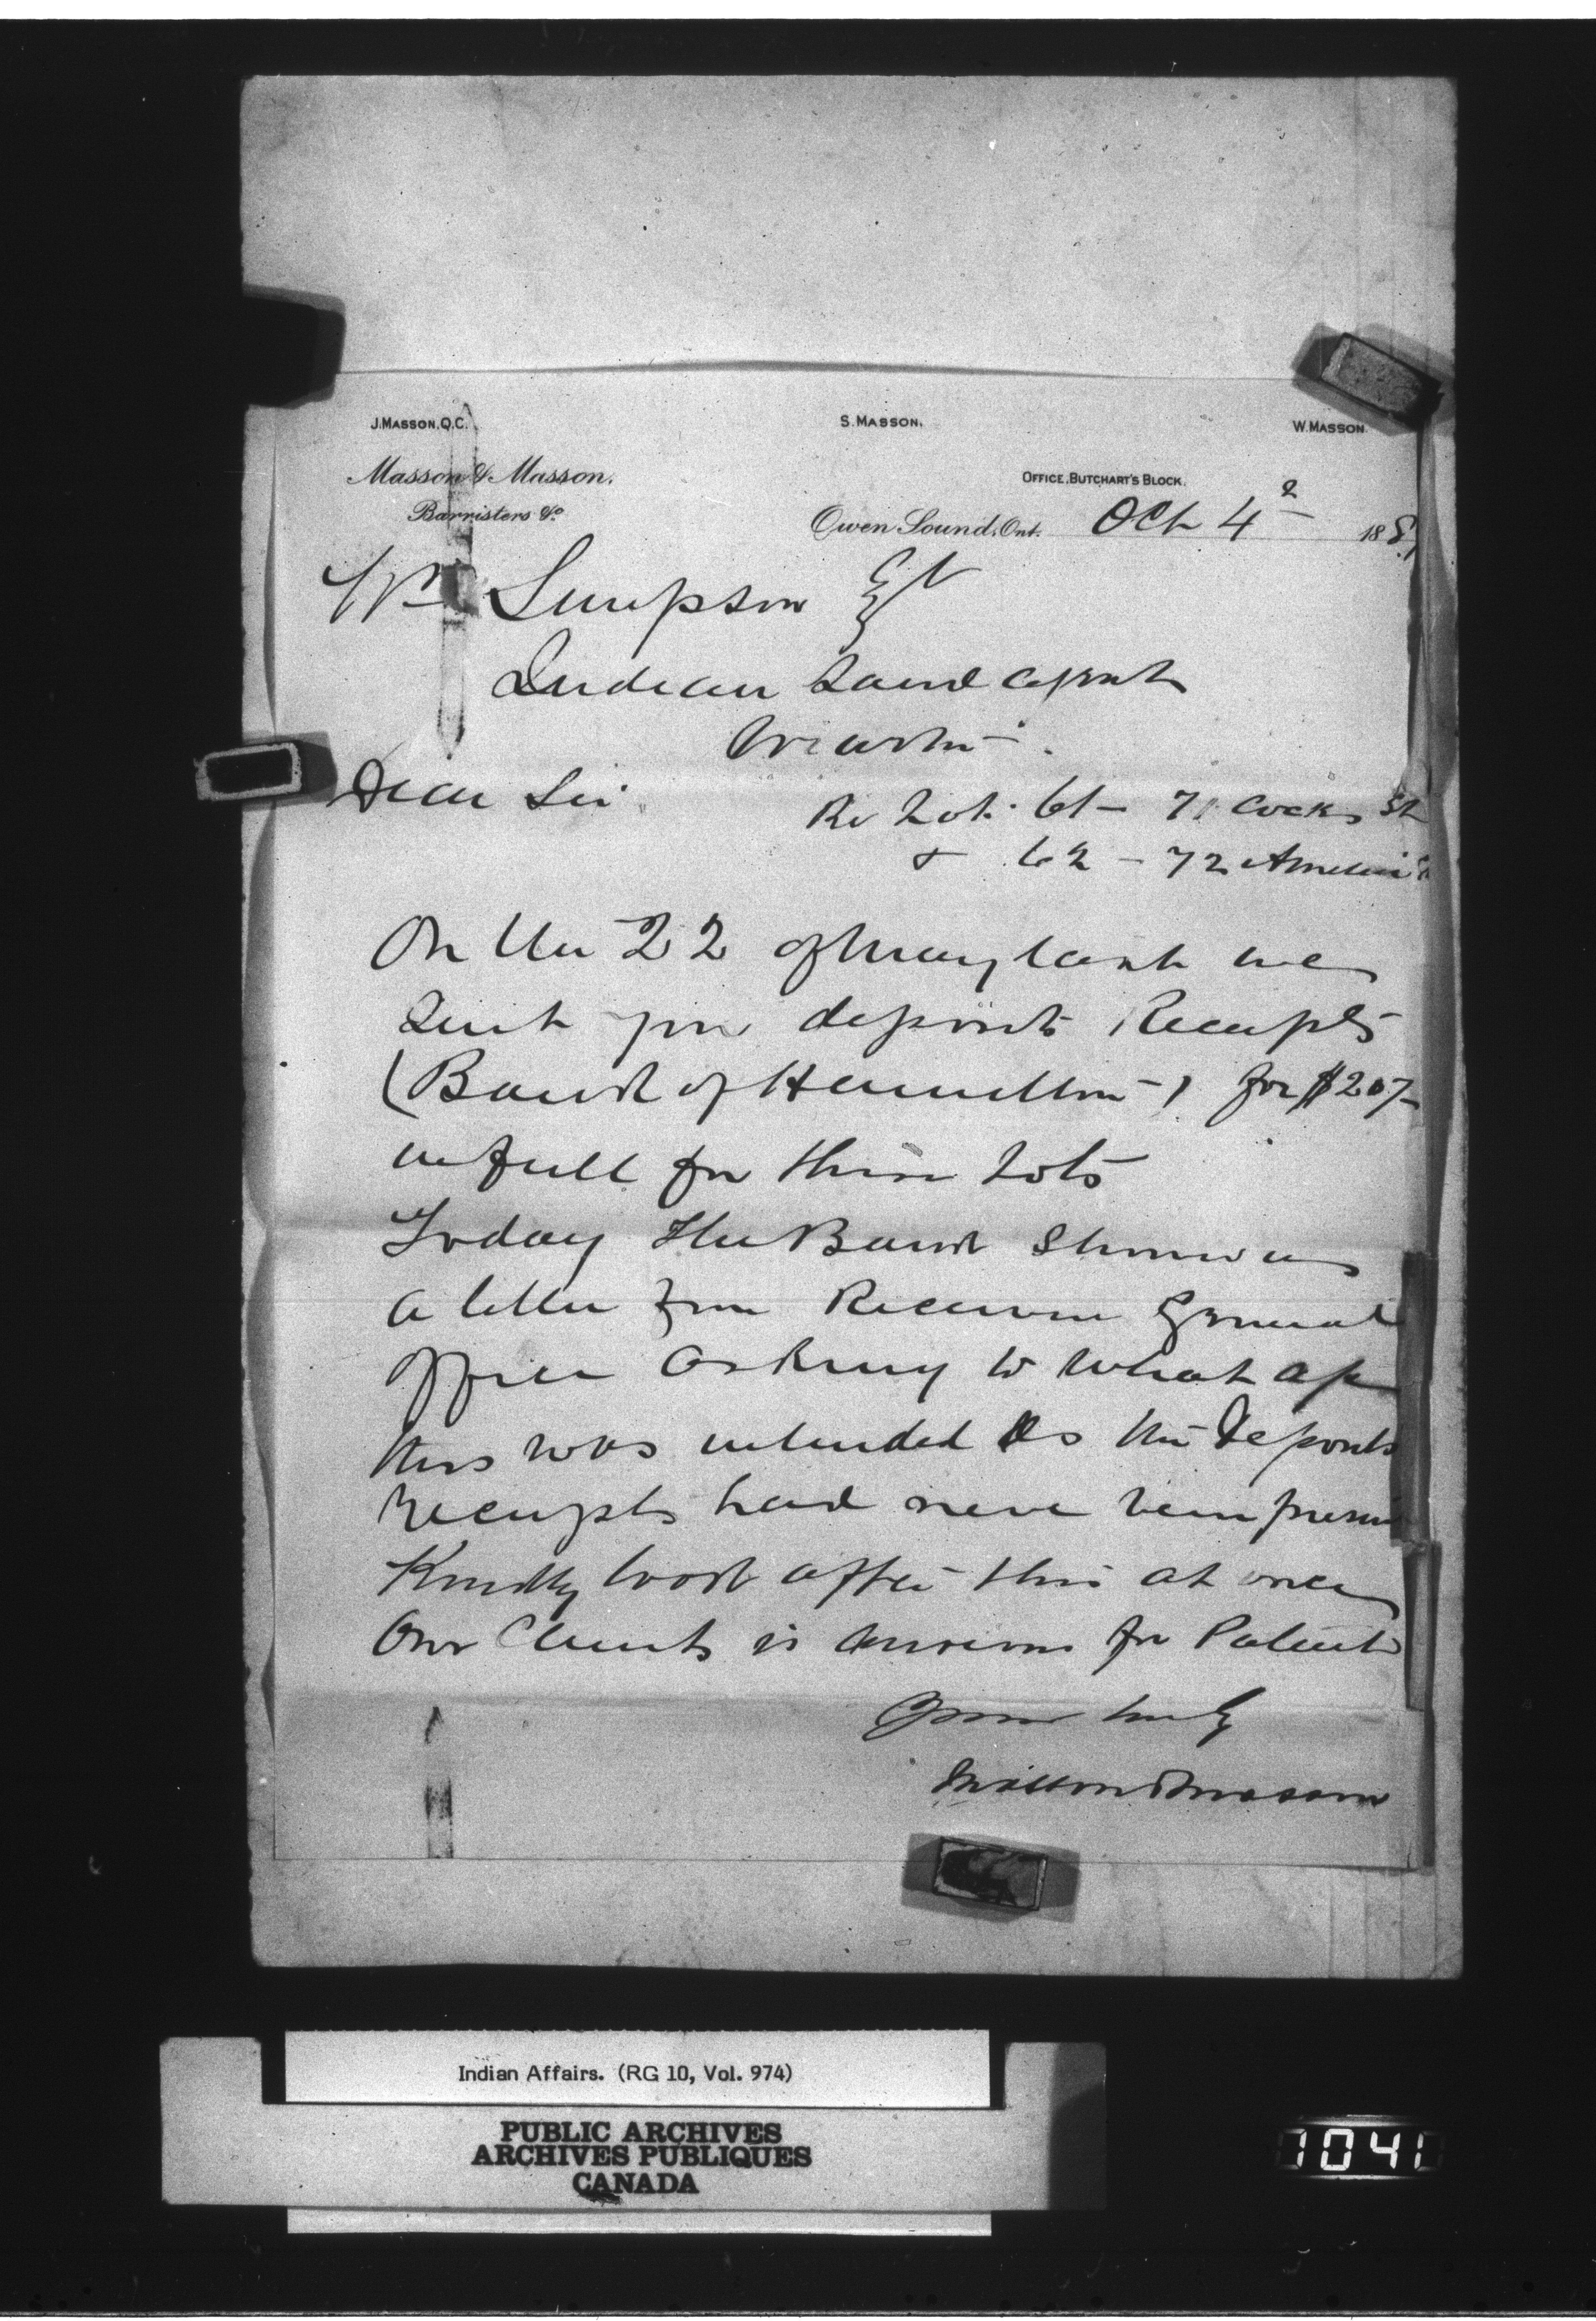 J. MASSON, Q.C. S. MASSON. W. MASSON.
Masson & Masson.
Barristers &c.
OFFICE, BUTCHART'S BLOCK.
Owen Sound, Ont. Oct 4 188
Wm Simpson Esq
Indian Land Agent
Wiarton.
Dear Sir
Re Lots 61 - 71 Cocks St
& 62 - 72 Amelia St
On the 22 of May last we
sent you deposit Receipts
(Bank of Hamilton) for $207
in full for these Lots
Today the Bank shew us
a letter from Receiver General
office asking to what a/c
this was intended as the deposit
receipts had never been
Kindly look after this at once
Our Clients is anxious for Patent
Yours truly
Masson & Masson
Indian Affairs. (RG 10, Vol. 974)
PUBLIC ARCHIVES
ARCHIVES PUBLIQUES
CANADA
1041